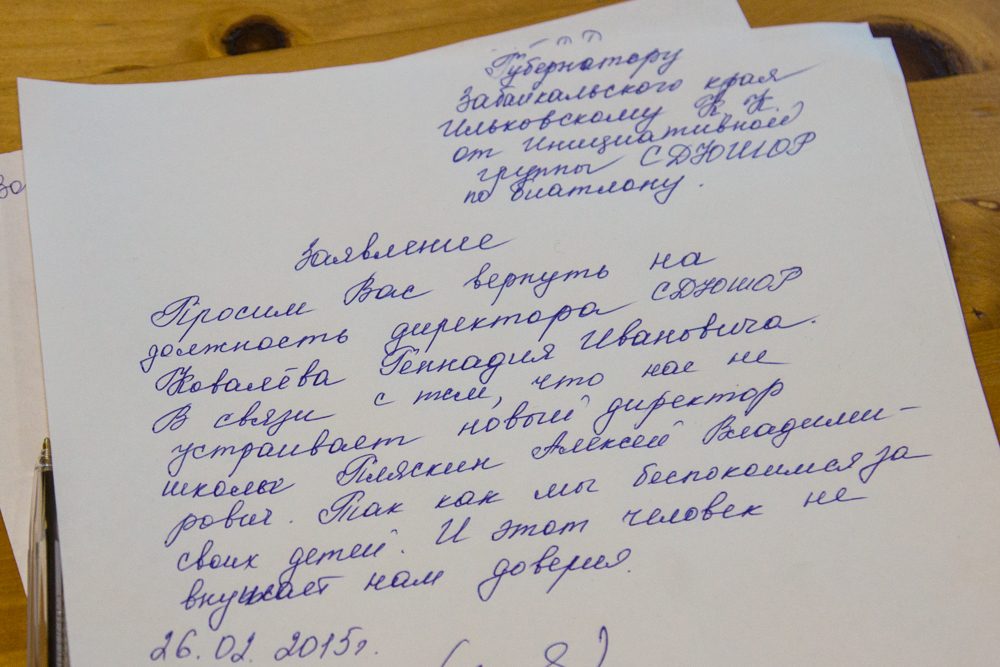 Губернатору
Забайкальского края
Ильковскому К. К.
от Инициативной
группы СДЮШОР
по биатлону.
Заявление
Просим Вас вернуть на
должность директора СДЮШОР
Ковалёва Геннадия Ивановича.
В связи с тем, что нас не
устраивает новый директор
школы Пляскин Алексей Владими-
рович. Так как мы беспокоимся за
своих детей. И этот человек не
внушает нам доверия.
26.02.2015г.
За